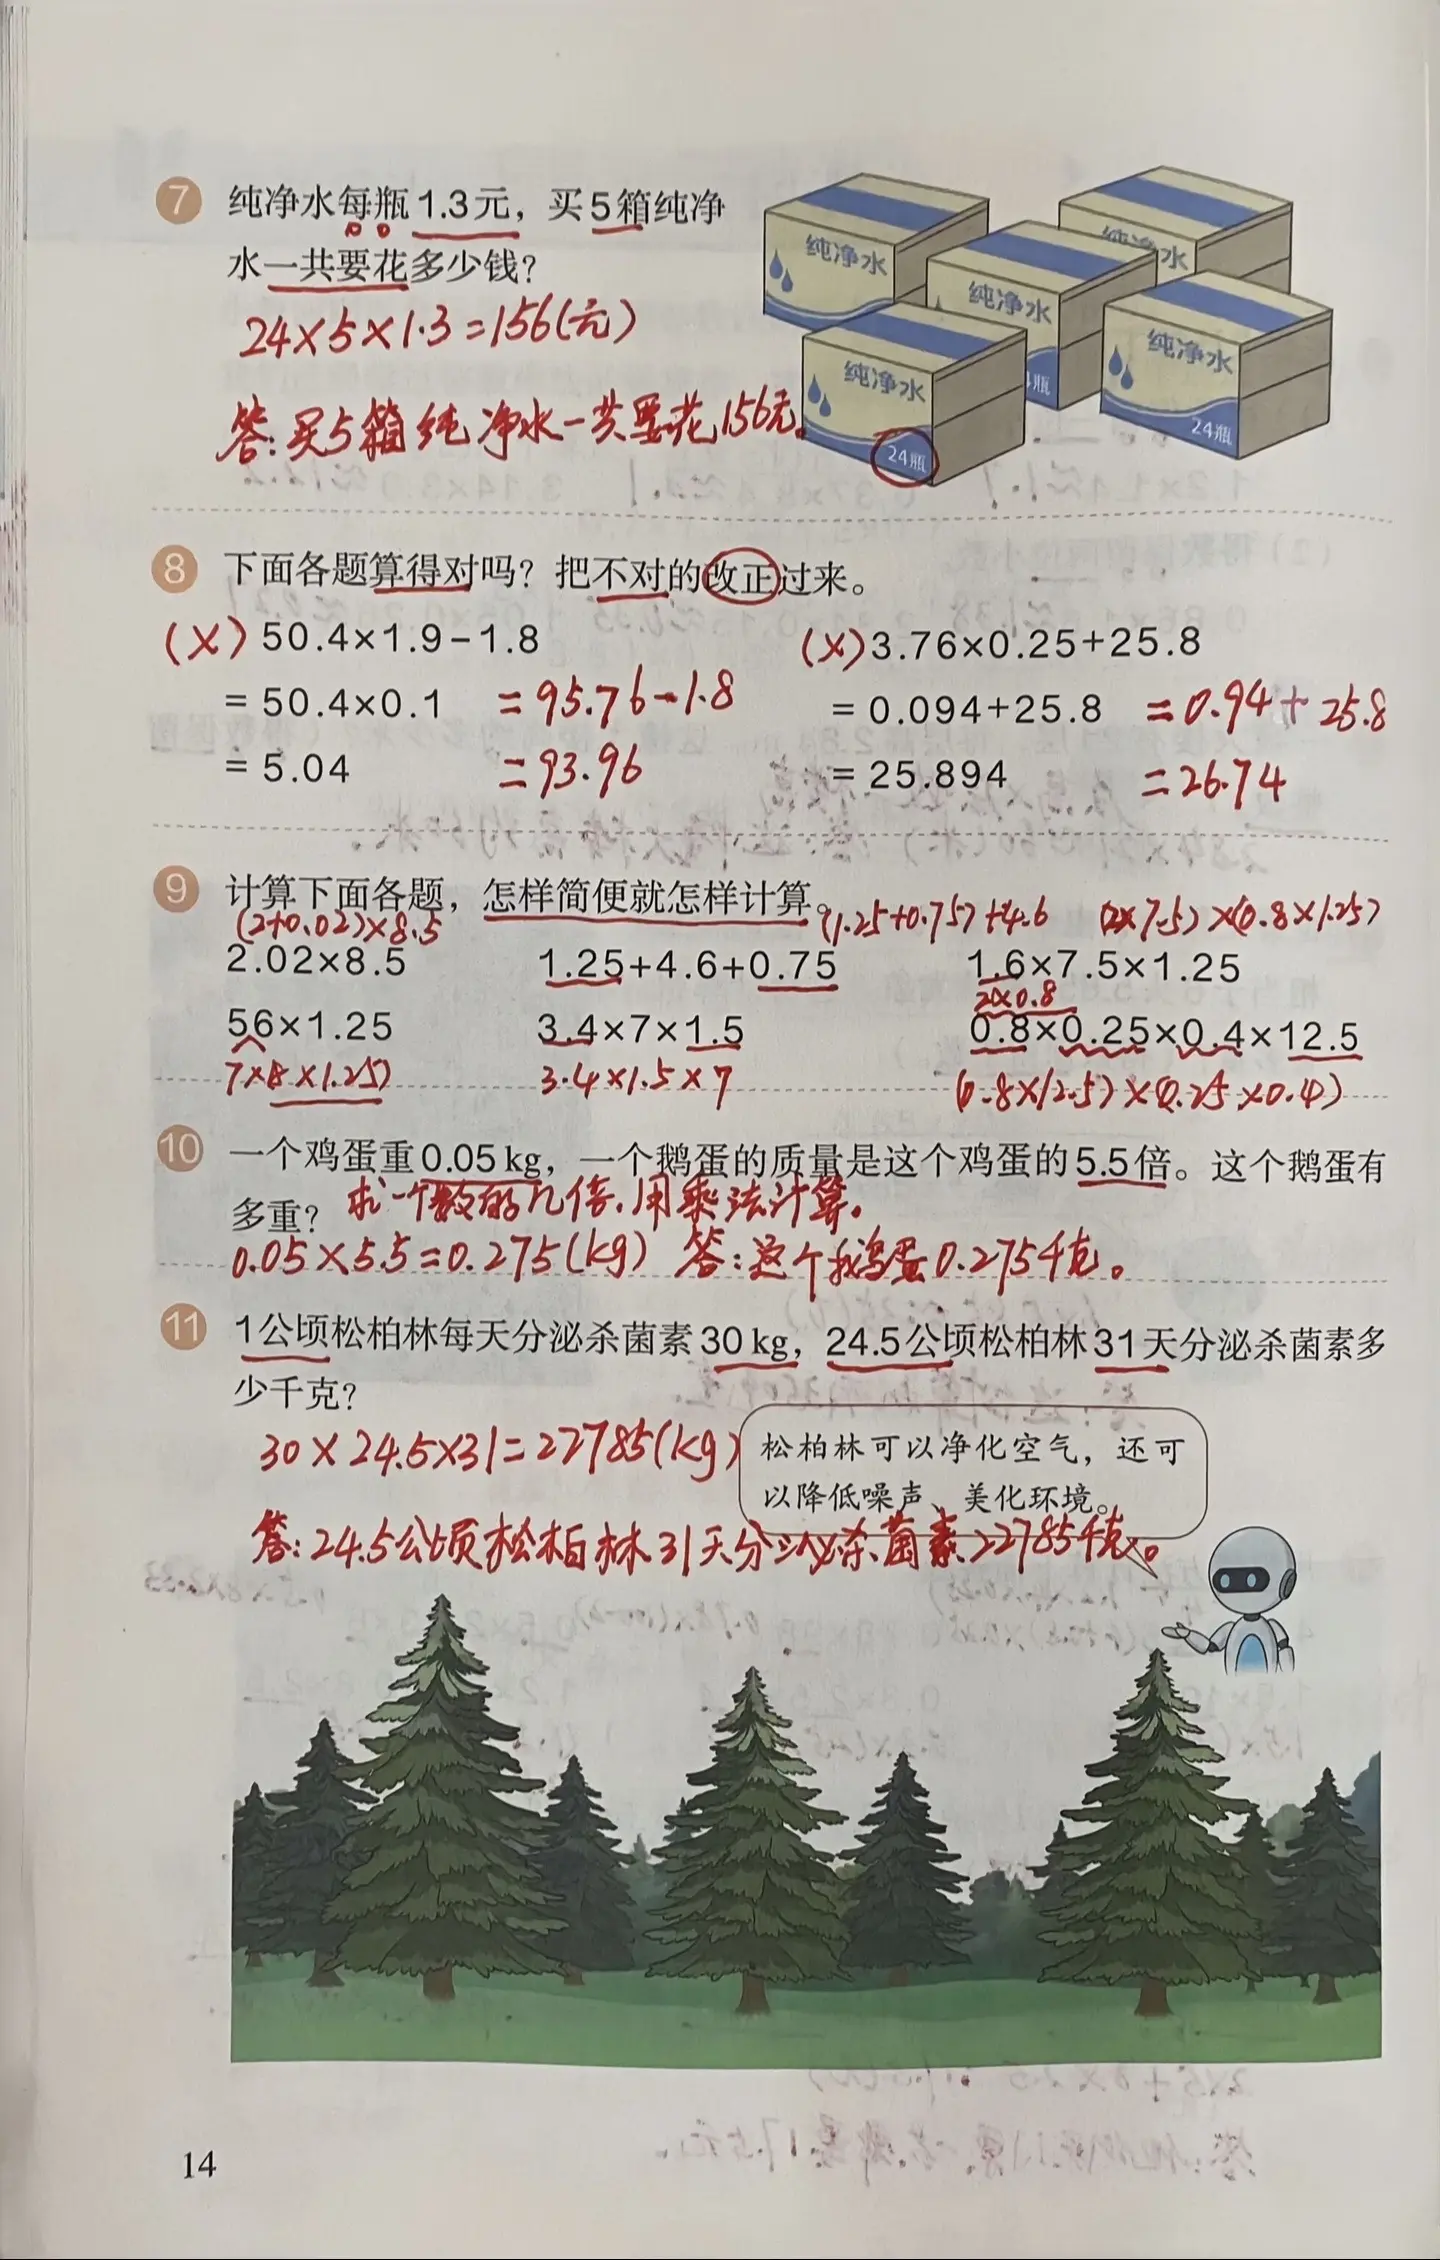 7 纯净水每瓶1.3元，买5箱纯净
水一共要花多少钱？
24×5×1.3=156(元)
答:买5箱纯净水一共要花156元。
纯净水
纯净水
纯净水
纯净水
24瓶
24瓶
8 下面各题算得对吗？把不对的改正过来。
(×) 50.4×1.9-1.8 (×) 3.76×0.25+25.8
=50.4×0.1 =95.76-1.8 =0.094+25.8 =0.94+25.8
=5.04 =93.96 =25.894 =26.74
9 计算下面各题，怎样简便就怎样计算。
(2+0.02)×8.5 (1.25+0.75)+4.6 (2×7.5)×(0.8×1.25)
2.02×8.5 1.25+4.6+0.75 1.6×7.5×1.25
2×0.8
56×1.25 3.4×7×1.5 0.8×0.25×0.4×12.5
7×(8×1.25) 3.4×1.5×7 (0.8×12.5)×(0.25×0.4)
10 一个鸡蛋重0.05 kg，一个鹅蛋的质量是这个鸡蛋的5.5倍。这个鹅蛋有
多重？ 求一个数的几倍,用乘法计算。
0.05×5.5=0.275(kg) 答:这个鹅蛋0.275千克。
11 1公顷松柏林每天分泌杀菌素30 kg，24.5公顷松柏林31天分泌杀菌素多
少千克？
30×24.5×31=22785(kg)
松柏林可以净化空气，还可
以降低噪声、美化环境。
答:24.5公顷松柏林31天分泌杀菌素22785千克。
14